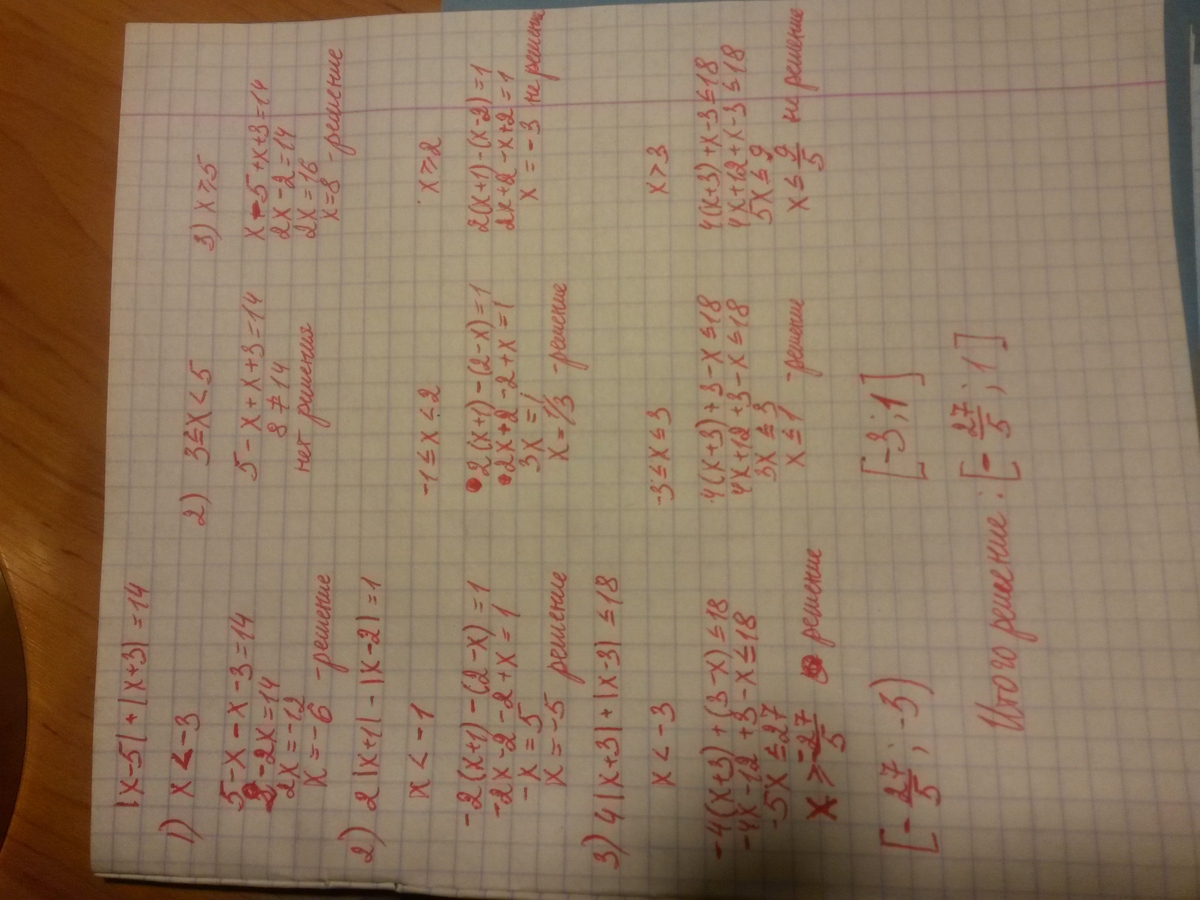 |x-5| + |x+3| = 14
1) x < -3
2) 3 ≤ x < 5
3) x ≥ 5
5-x-x-3=14
2-2x=14
2x=-12
x=-6 -решение
5-x+x+3=14
8≠14
нет решения
x-5+x+3=14
2x-2=14
2x=16
x=8 -решение
2) 2|x+1| - |x-2| = 1
x < -1
-1 ≤ x < 2
x ≥ 2
-2(x+1)-(2-x)=1
-2x-2-2+x=1
-x=5
x=-5 решение
2(x+1)-(2-x)=1
2x+2-2+x=1
3x=1
x=1/3 -решение
2(x+1)-(x-2)=1
2x+2-x+2=1
x=-3 не решение
3) 4|x+3| + |x-3| ≤ 18
x < -3
-3 ≤ x ≤ 3
x > 3
-4(x+3)+(3-x)≤18
-4x-12+3-x≤18
-5x≤27
x ≥ -27/5 решение
4(x+3)+3-x≤18
4x+12+3-x≤18
3x≤3
x≤1 -решение
4(x+3)+x-3≤18
4x+12+x-3≤18
5x≤9
x≤9/5 не решение
[-27/5; -3)
[-3; 1]
Итого решение: [-27/5; 1]